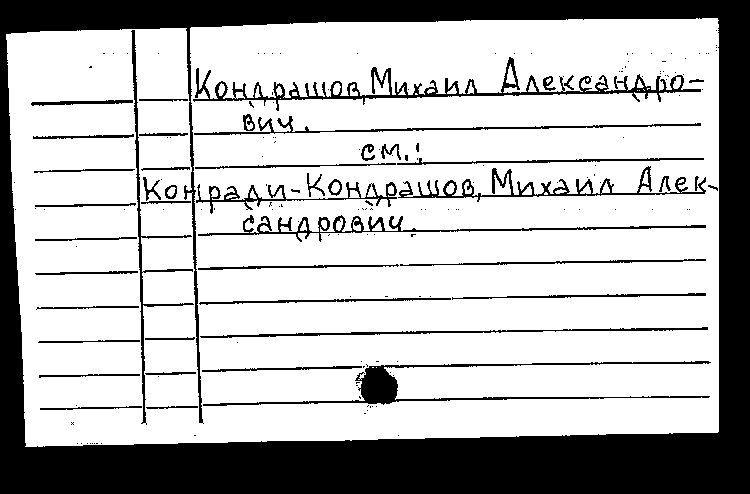 Кондрашов, Михаил Александро-
вич.
см.:
Конради-Кондрашов, Михаил Алек-
сандрович.